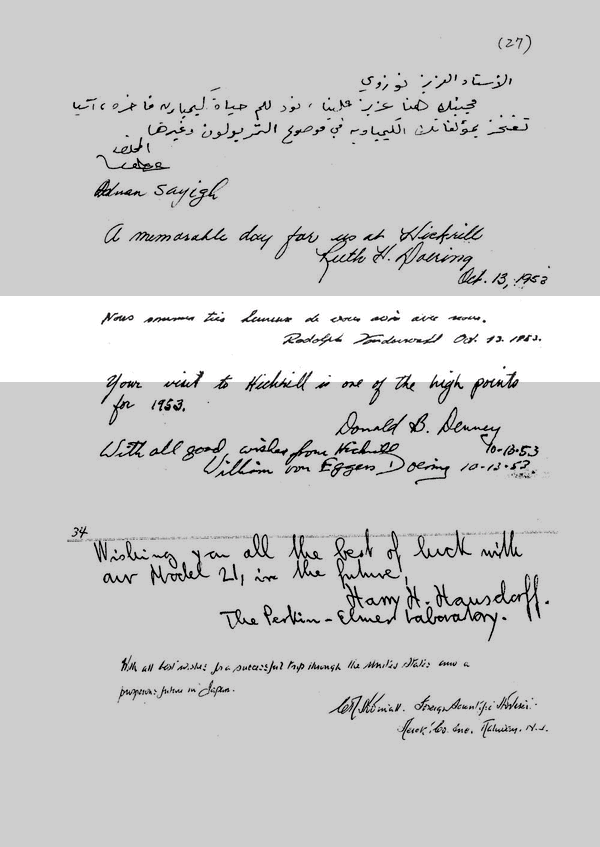 (27)
الأستاذ العزيز نوزوي
مجيئك هنا عزيز علينا ، نود لكم حياة كيمياوية فاخره ، آسيا
تفتخر بمؤلفاتك الكيمياويه في موضوع التربولون وغيرها
المخلص
Adnan Sayigh
A memorable day for us at Hickrill
Ruth H. Doering
Oct. 13, 1953
Nous sommes très heureux de vous avoir avec nous.
Rudolph Oct. 13. 1953.
Your visit to Hickrill is one of the high points
for 1953.
Donald B. Denney
10-13-53
With all good wishes from Hickrill
William von Eggers Doering 10-13-53
34
Wishing you all the best of luck with
our Model 21, in the future!
Harry H. Hausdorff.
The Perkin-Elmer Laboratory.
With all best wishes for a successful trip through the United States and a
prosperous future in Japan.
Foreign Scientific
Merck & Co. Inc. Rahway, N.J.